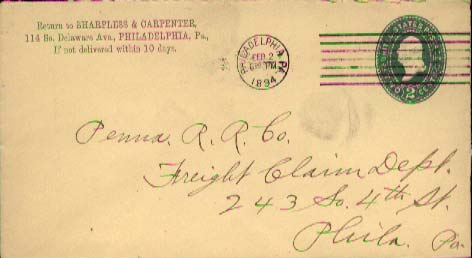 Return to SHARPLESS & CARPENTER,
114 So. Delaware Ave., PHILADELPHIA, Pa.,
If not delivered within 10 days.
PHILADELPHIA, PA.
FEB 2
PM
1894
UNITED STATES
TWO CENTS
2
Penna. R. R. Co.
Freight Claim Dept.
243 So. 4th St.
Phila. Pa.